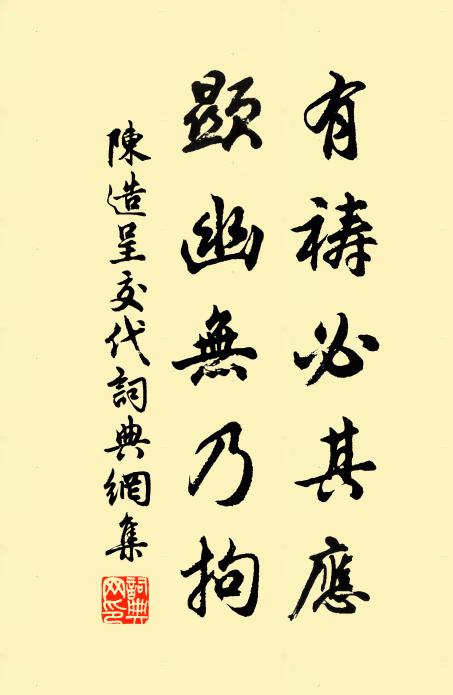 有祷必其應
顯幽無乃拘
陳造呈交代詞典網集
詞典网印